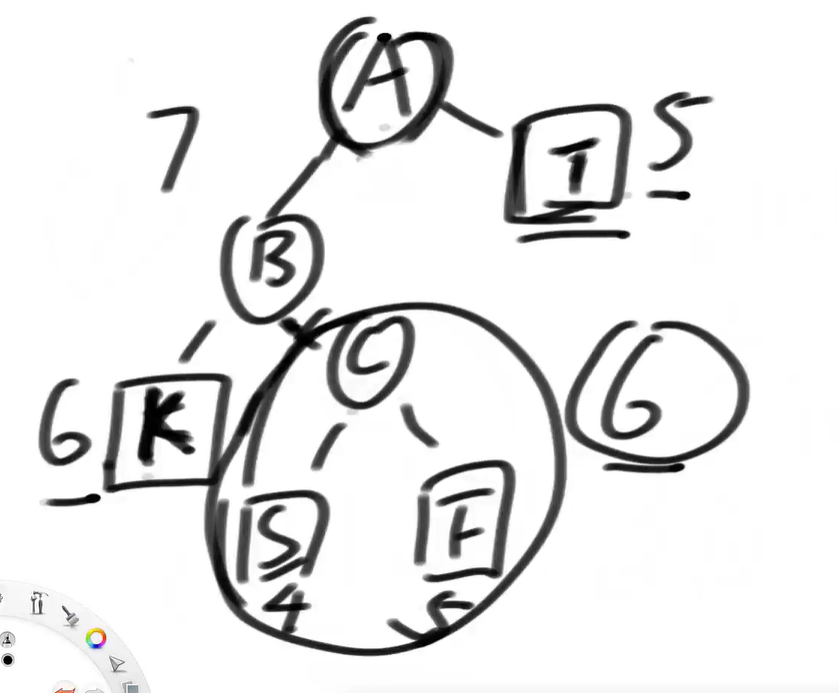 A
7
T 5
B
C
6 K
6
S F
4 5